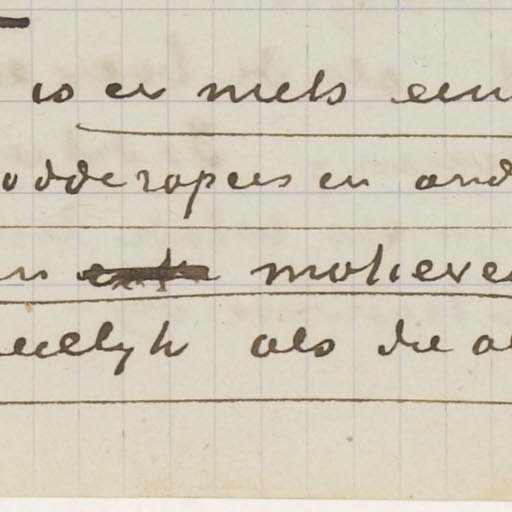 is er niets een
odderapers en and
en motieven
eelijk als die al